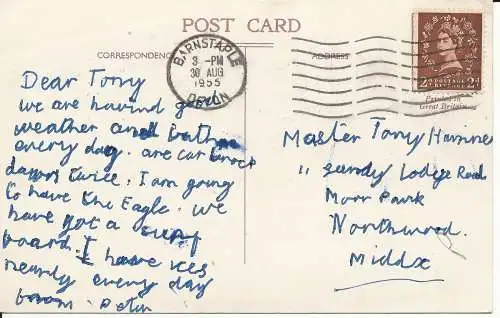 POST CARD
CORRESPONDENCE
ADDRESS
BARNSTAPLE
3 - PM
30 AUG
1955
DEVON
2D POSTAGE REVENUE 2D
Printed in
Great Britain
Dear Tony
we are having
weather and bathe
every day. are car brock
down twice. I am going
to have the Eagle. we
have got a surf
board. I have ices
nearly every day
from. Peter
Master Tony
11 Sandy Lodge Road
Moor Park
Northwood.
Middx